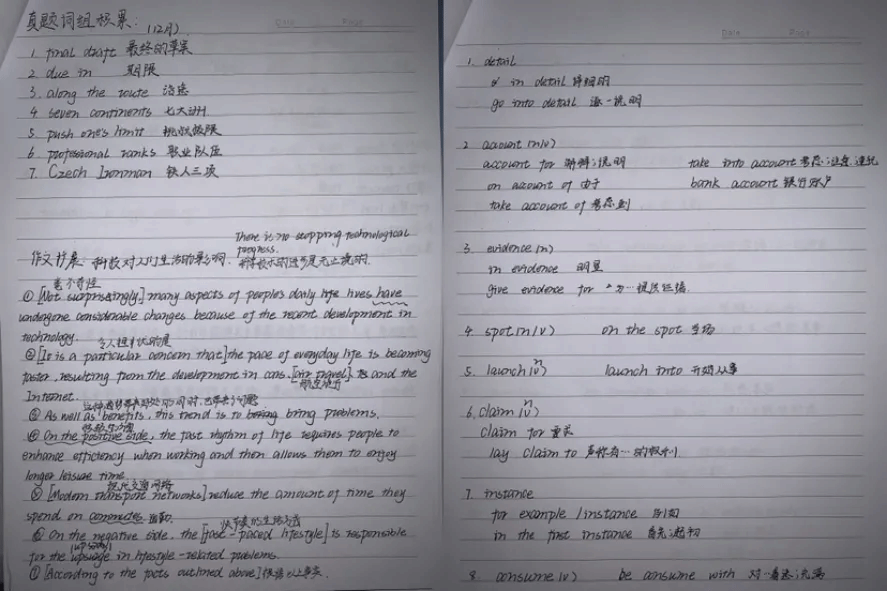 真题词组积累：(12月)
1. final draft 最终的草案
2. due in 期限
3. along the route 沿途
4. seven continents 七大洲
5. push one's limit 挑战极限
6. professional ranks 职业队伍
7. Czech Ironman 铁人三项
There is no stopping technological
progress.
作文积累: 科教对人们生活的影响. 科学技术的进步是无止境的.
毫不奇怪
① [Not surprisingly] many aspects of people's daily life lives have
undergone considerable changes because of the recent development in
technology.
令人担忧的是
② [It is a particular concern that] the pace of everyday life is becoming
faster, resulting from the development in cars, [air travel], and the
航空旅行
Internet.
③ As well as benefits, this trend is to bring problems.
④ On the positive side, the fast rhythm of life requires people to
enhance efficiency when working and then allows them to enjoy
longer leisure time.
现代交通网络
⑤ [Modern transport networks] reduce the amount of time they
spend on commutes 通勤.
快节奏的生活方式
⑥ On the negative side, the [fast-paced lifestyle] is responsible
for the upsurge in lifestyle-related problems.
⑦ [According to the facts outlined above] 根据以上事实.
Date Page
1. detail
in detail 详细的
go into detail 逐一说明
2. account n(v)
account for 解释;说明 take into account 考虑;注意
on account of 由于 bank account 银行账户
take account of 考虑到
3. evidence (n)
in evidence 明显
give evidence for 为…提供证据.
4. spot n(v) on the spot 当场
5. launch (v) n launch into 开始从事
6. claim (v) n
claim for 要求
lay claim to 声称有…的权利
7. instance
for example / instance 例如
in the first instance 首先;起初
8. consume (v) be consume with 对…着迷;充满